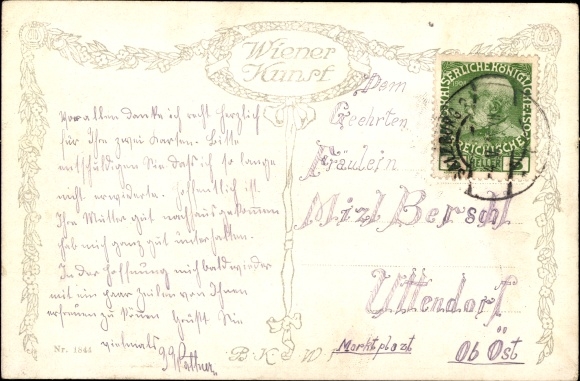 Wiener
Kunst
Vor allem danke ich recht herzlich
für Ihre zwei Karten. Bitte
entschuldigen Sie daß ich so lange
nicht erwiderte. Hoffentlich ist
Ihre Mutter gut nachhausgekommen
hab mich ganz gut unterhalten.
In der Hoffnung mich bald wieder
mit ein paar Zeilen von Ihnen
erfreuen zu können Grüßt Sie
vielmals
Nr. 1844
B. K. W. I.
Dem
Geehrten
Fräulein
Mizl Berschl
Uttendorf
Marktplazt
Ob Öst
KAISERLICHE KÖNIGL
REICHISCHE
HELLER
5